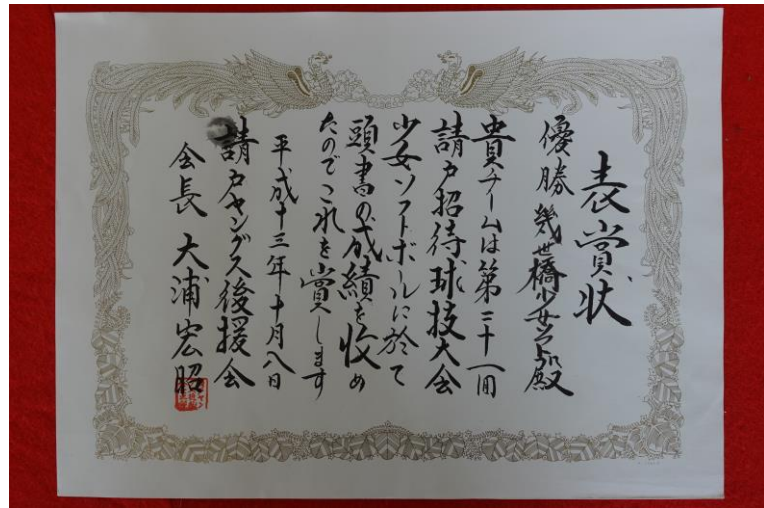 表賞状
優勝 幾世橋少女ソフト殿
貴チームは第二十一回
請戸招待球技大会
少女ソフトボールに於て
頭書の成績を收め
たのでこれを賞します
平成十三年十月八日
請戸ヤングス後援会
会長 大浦宏昭